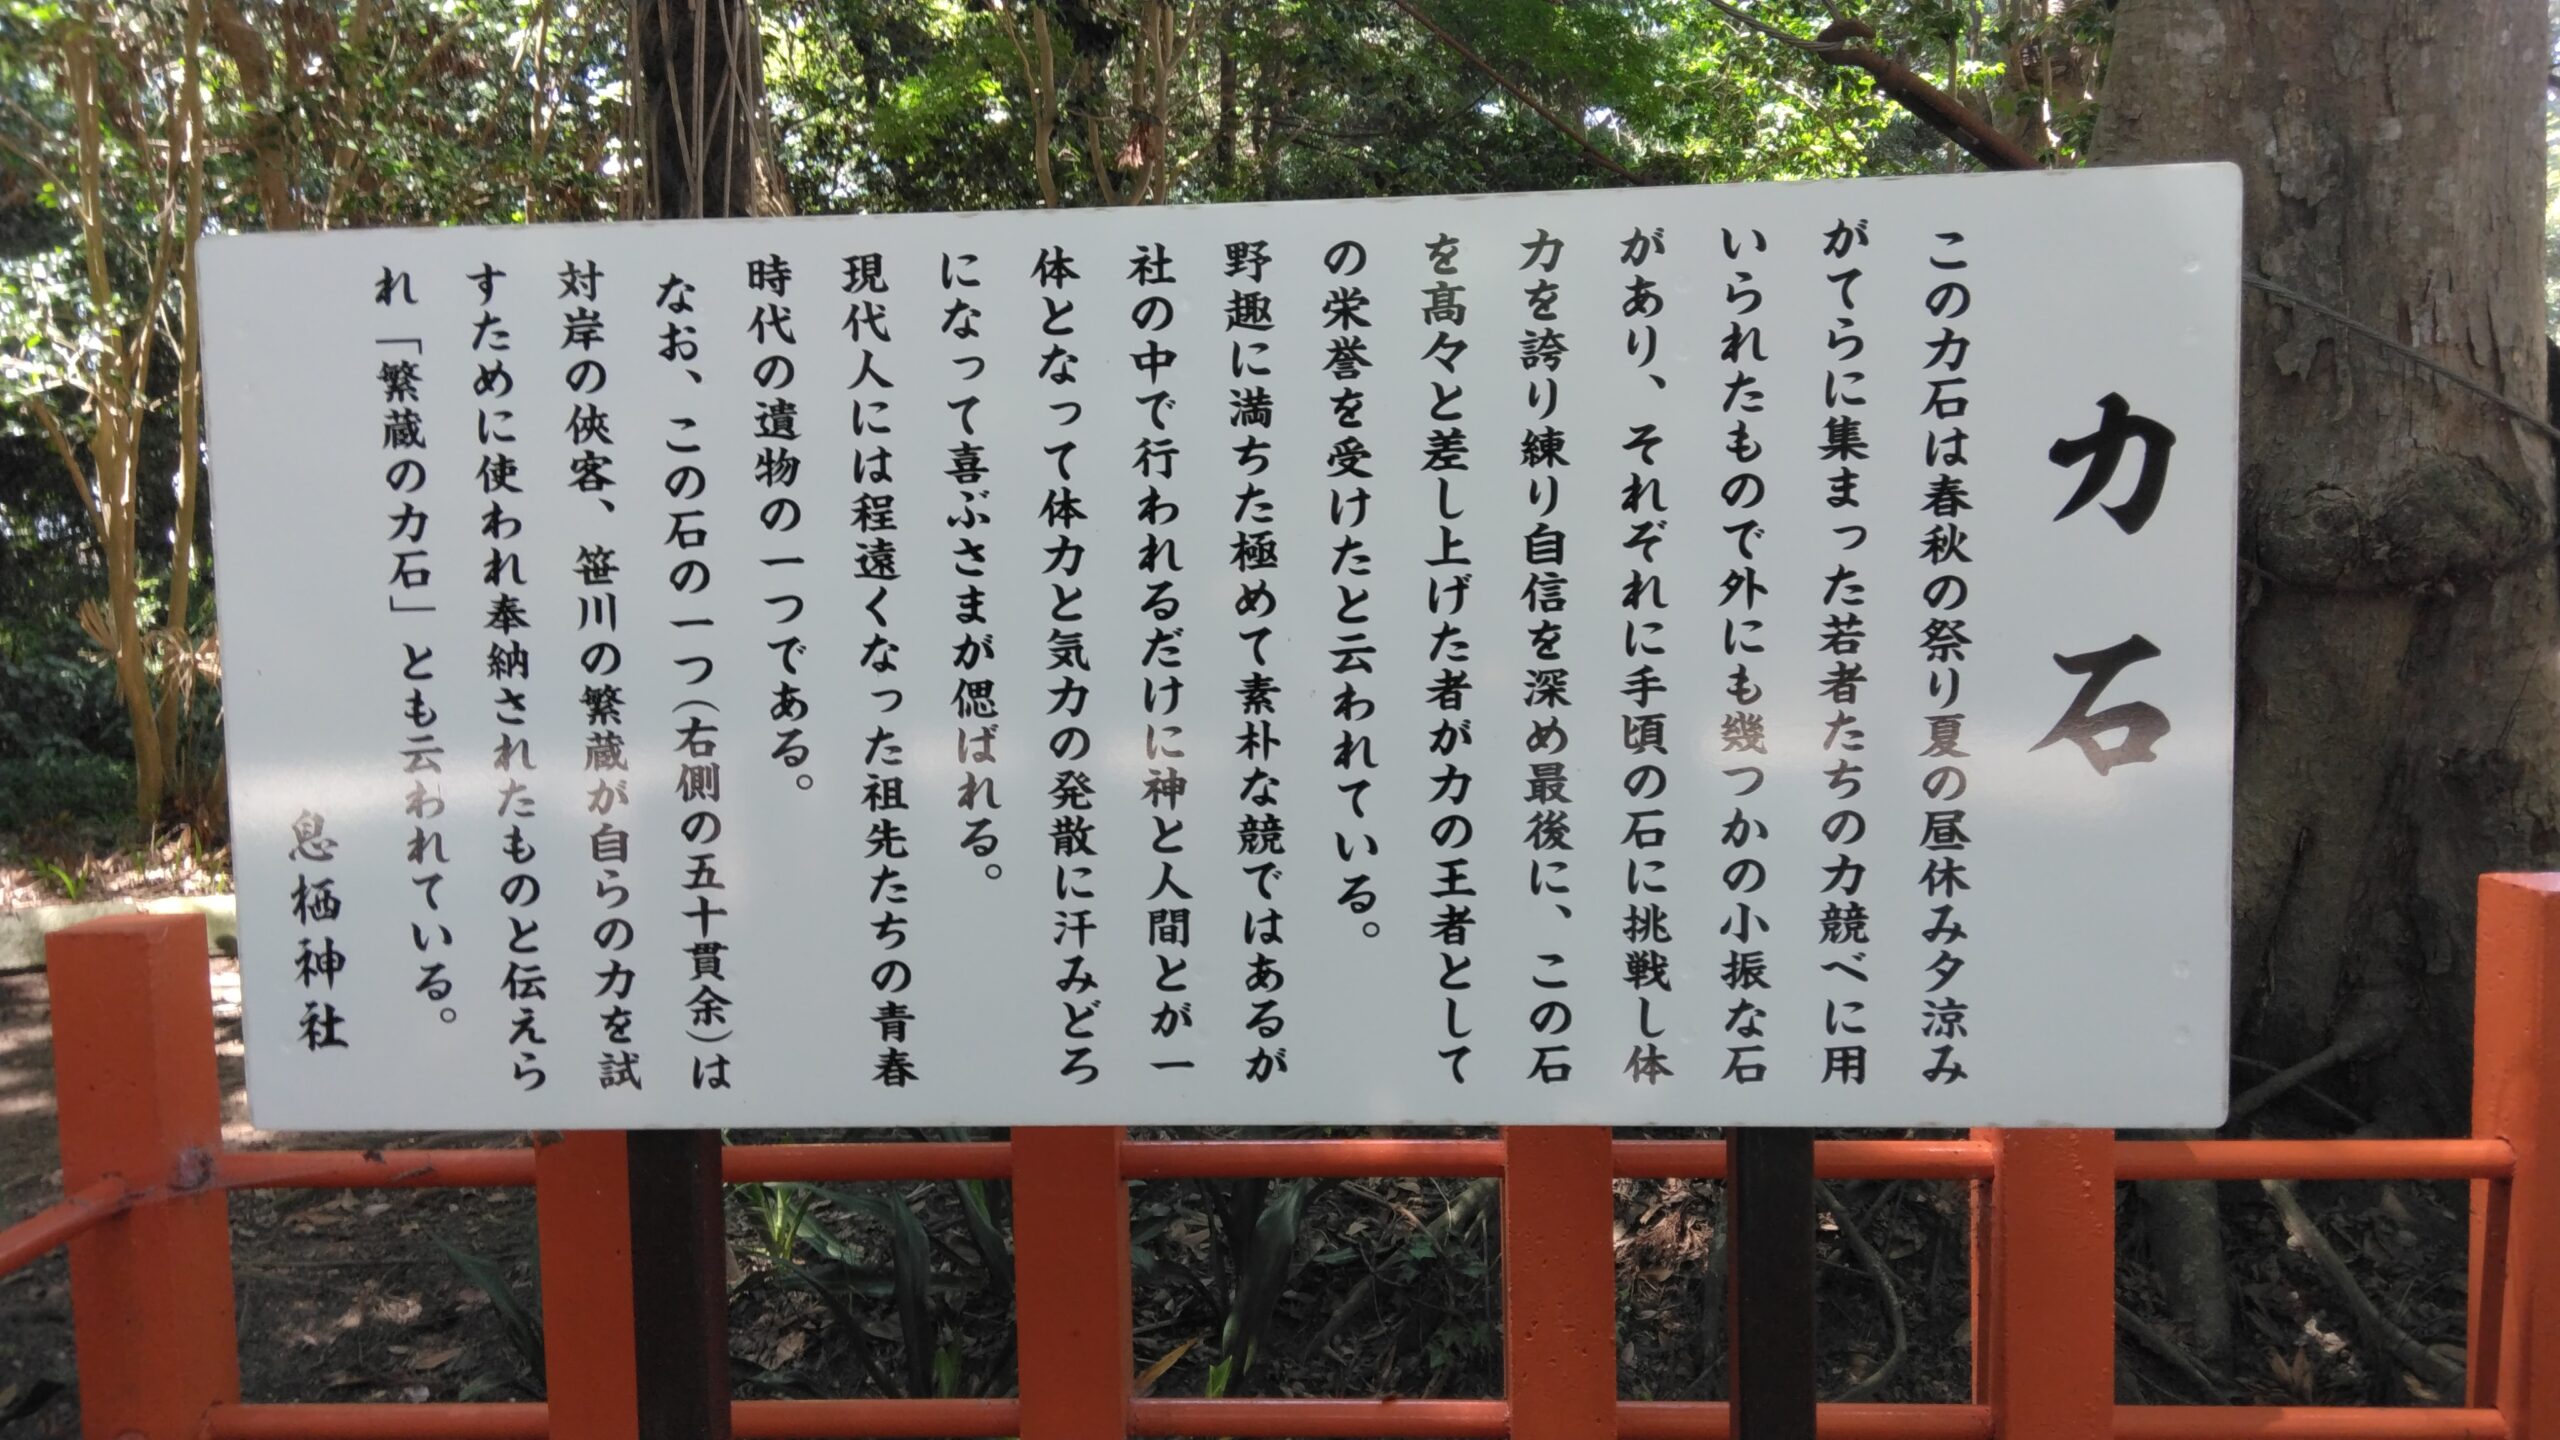 力石
この力石は春秋の祭り夏の昼休み夕涼み
がてらに集まった若者たちの力競べに用
いられたもので外にも幾つかの小振な石
があり、それぞれに手頃の石に挑戦し体
力を誇り練り自信を深め最後に、この石
を高々と差し上げた者が力の王者として
の栄誉を受けたと云われている。
野趣に満ちた極めて素朴な競ではあるが
社の中で行われるだけに神と人間とが一
体となって体力と気力の発散に汗みどろ
になって喜ぶさまが偲ばれる。
現代人には程遠くなった祖先たちの青春
時代の遺物の一つである。
なお、この石の一つ（右側の五十貫余）は
対岸の俠客、笹川の繁蔵が自らの力を試
すために使われ奉納されたものと伝えら
れ「繁蔵の力石」とも云われている。
息栖神社